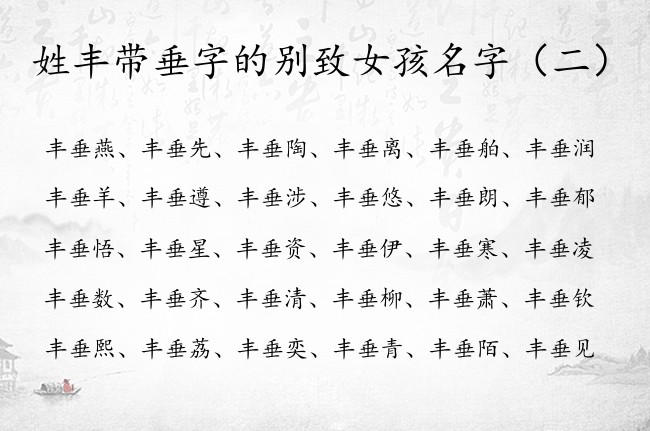 姓丰带垂字的别致女孩名字（二）
丰垂燕、丰垂先、丰垂陶、丰垂离、丰垂舶、丰垂润
丰垂羊、丰垂遵、丰垂涉、丰垂悠、丰垂朗、丰垂郁
丰垂悟、丰垂星、丰垂资、丰垂伊、丰垂寒、丰垂凌
丰垂数、丰垂齐、丰垂清、丰垂柳、丰垂萧、丰垂钦
丰垂熙、丰垂荔、丰垂奕、丰垂青、丰垂陌、丰垂见